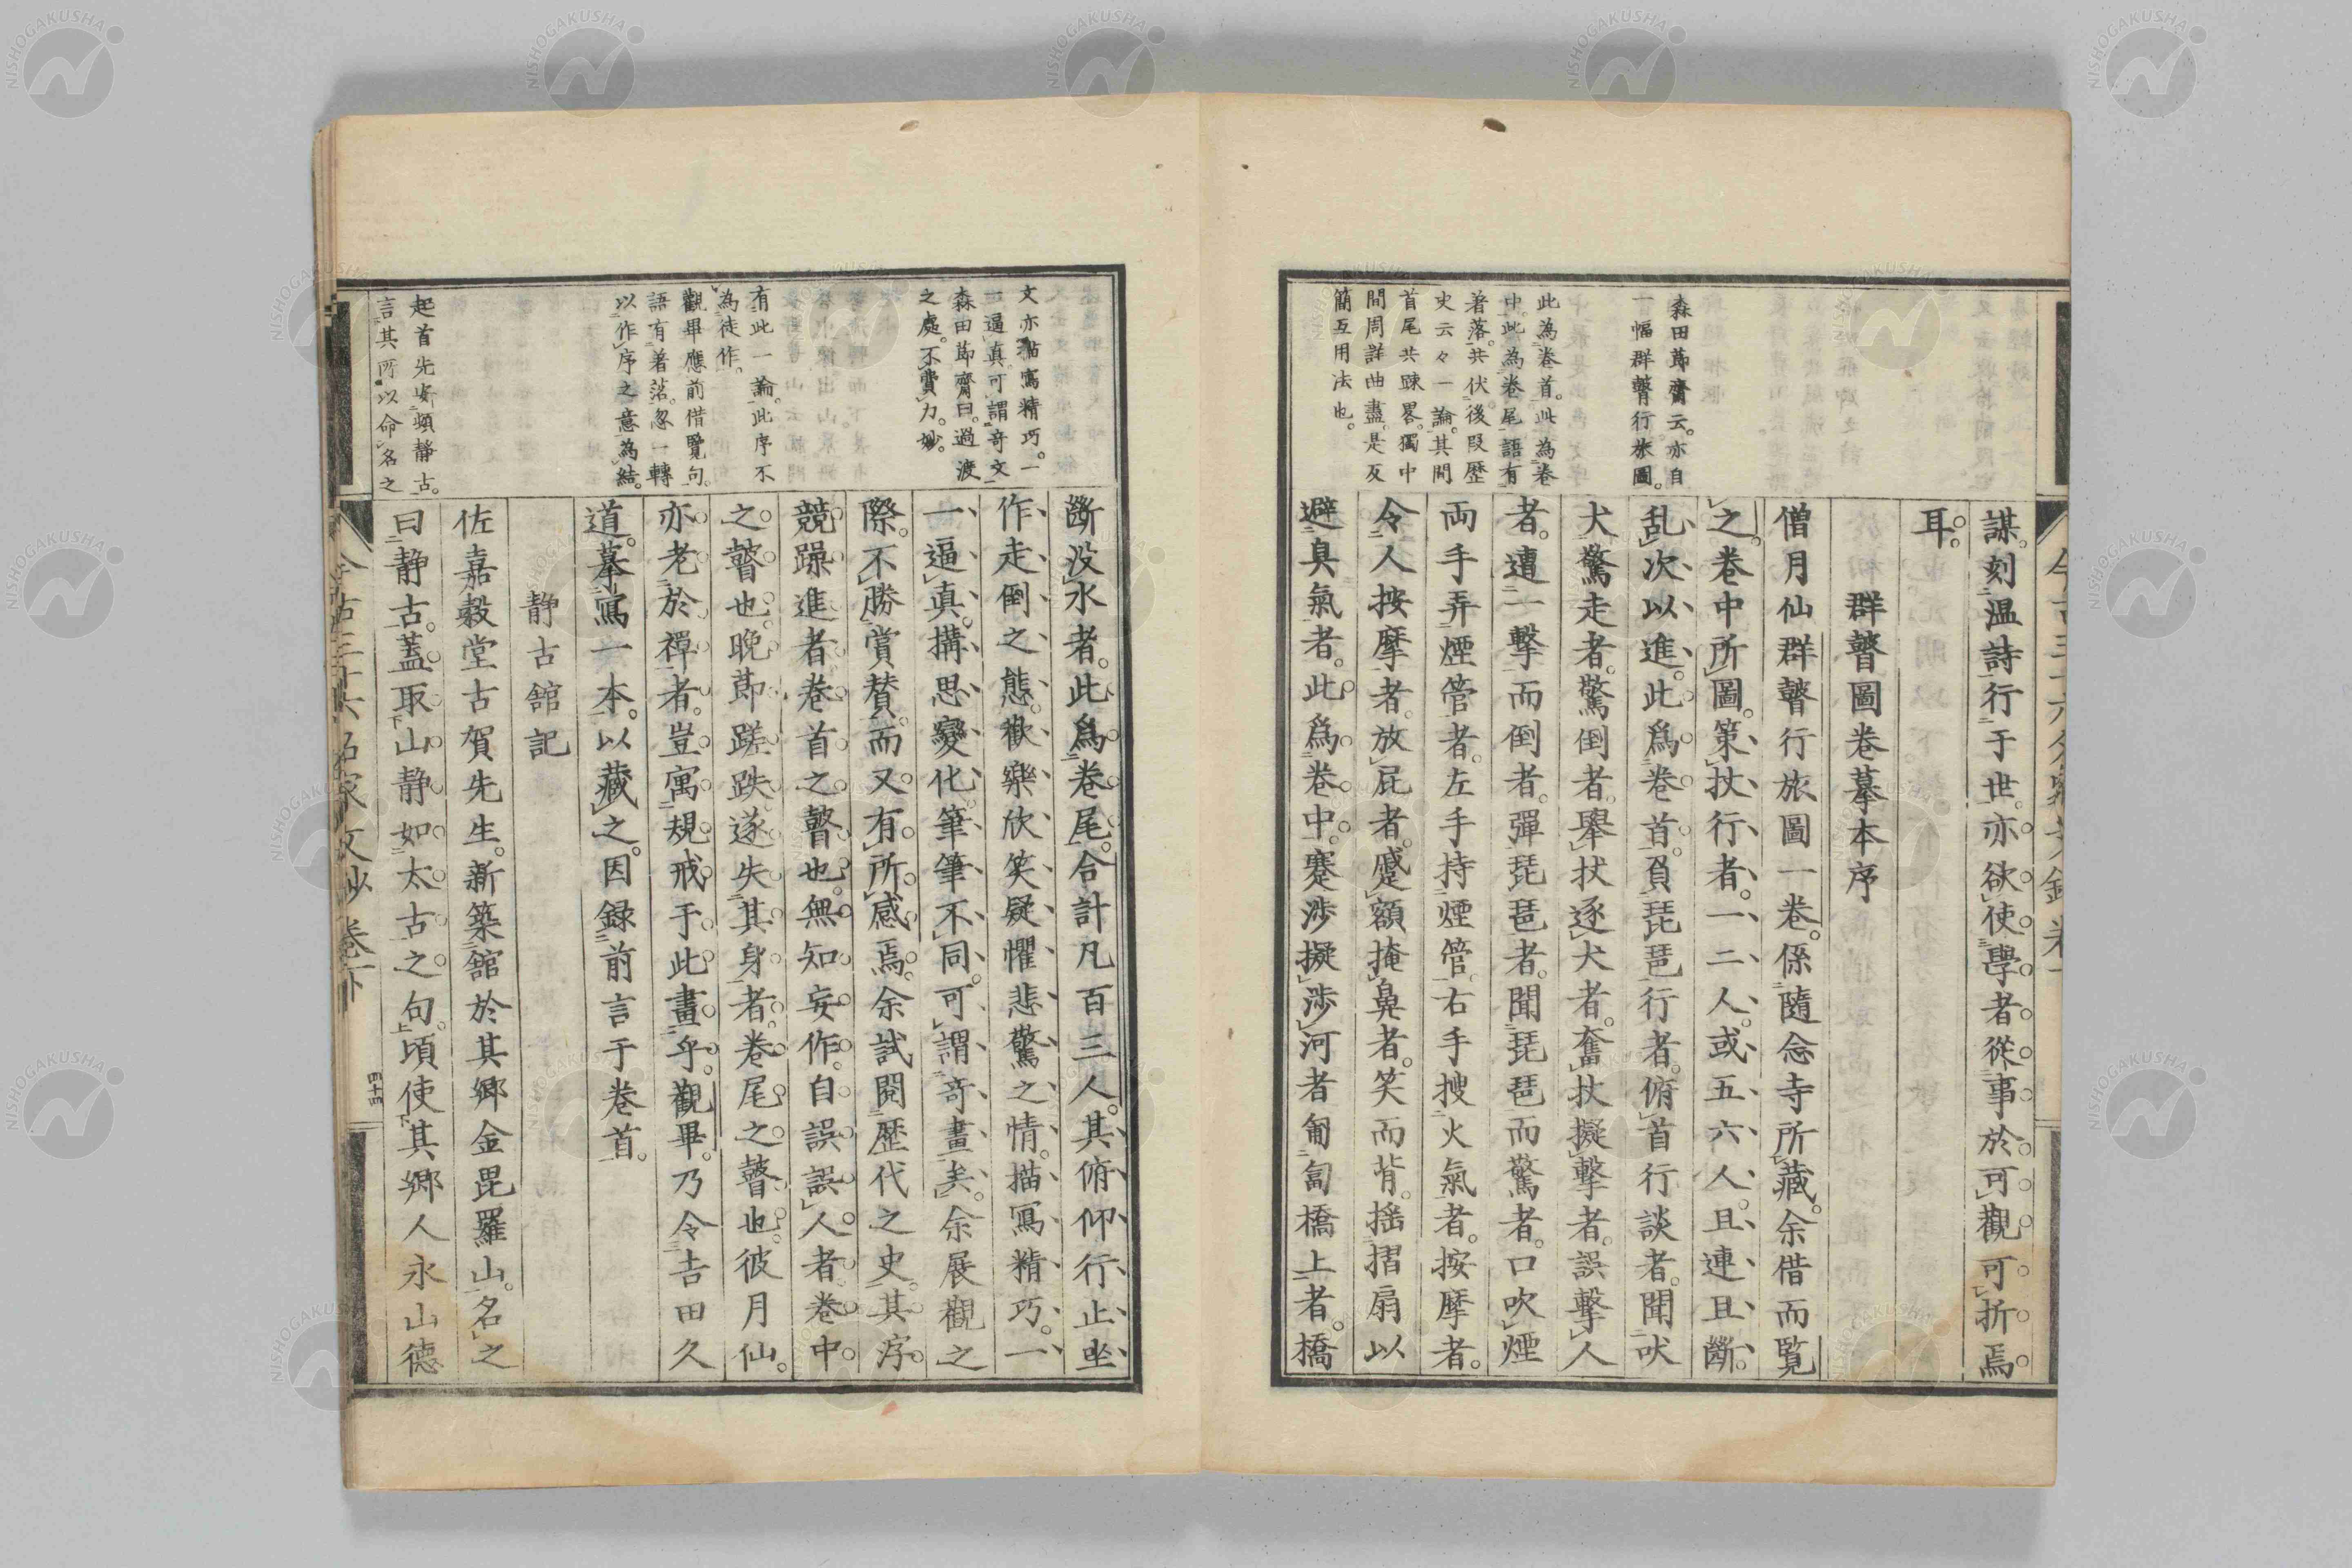 謀刻温詩行于世。亦欲使學者從事於可觀可折焉
耳。
群瞽圖卷摹本序
僧月仙群瞽行旅圖一卷。係隨念寺所藏。余借而覧
之。卷中所圖。策杖行者。一二人。或五六人。且連且斷。
乱次以進。此爲卷首。負琵琶行者。俯首行談者。聞吠
犬驚走者。驚倒者。擧杖逐犬者。奮杖擬撃者。誤撃人
者。遭一撃而倒者。彈琵琶者。聞琵琶而驚者。口吹煙
両手弄煙管者。左手持煙管。右手搜火氣者。按摩者。
令人按摩者。放屁者。蹙額掩鼻者。笑而背。搖摺扇以
避臭氣者。此爲卷中。蹇渉擬渉河者匍匐橋上者。橋
森田莭齋云。亦自
一幅群瞽行旅圖。
此為卷首。此為卷
中。此為卷尾語有
著落。共伏後段歴
史云々一論。其間
首尾共踈畧。獨中
間周詳曲盡。是反
簡互用法也。
斷没水者。此爲卷尾。合計凡百三人。其俯仰行止坐
作走倒之態。歡樂欣笑疑懼悲驚之情。描寫精巧。一
一逼真。搆思變化筆筆不同。可謂竒畫矣。余展觀之
際。不勝賞賛。而又有所感焉。余試閲歴代之史。其序
競躁進者。卷首之瞽也。無知妄作。自誤誤人者。卷中
之瞽也。晩莭蹉跌遂失其身者。卷尾之瞽也。彼月仙。
亦老於禪者。豈寓規戒于此畫乎。觀畢。乃令吉田久
道。摹寫一本。以藏之。因録前言于卷首。
静古舘記
佐嘉穀堂古賀先生。新築舘於其郷金毘羅山。名之
曰静古。蓋取山静如太古之句。頃使其郷人永山德
文亦描寫精巧。一
一逼真。可謂竒文
森田莭齋曰。過渡
之處。不費力。妙。
有此一論。此序不
為徒作。
觀畢應前借覽句。
語有著落。忽一轉
以作序之意為結。
起首先安頓静古。
言其所以命名之
今古三十六名家文抄卷下
四十四
NISHOGAKUSHA